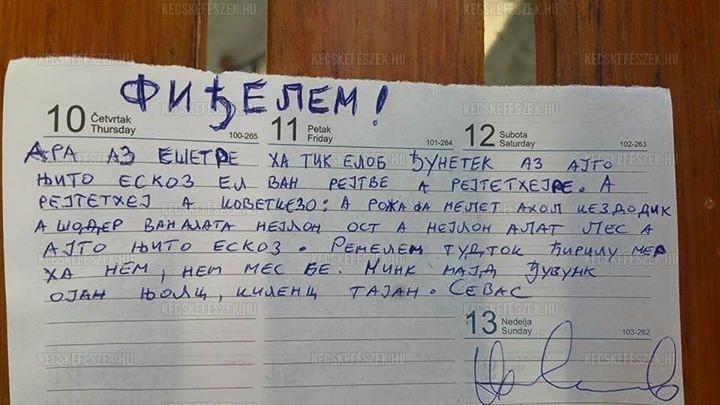 KECSKEFESZEK.HU KECSKEFESZEK.HU KECSKEFESZEK.HU
ФИЂЕЛЕМ!
10 Četvrtak Thursday 100-265
11 Petak Friday 101-264
12 Subota Saturday 102-263
АРА АЗ ЕШЕТРЕ ХА ТИК ЕЛОБ ЂУНЕТЕК АЗ АЈТО
ЊИТО ЕСКОЗ ЕЛ ВАН РЕЈТВЕ А РЕЈТЕТХЕЈРЕ. А
РЕЈТЕТХЕЈ А КОВЕТКЕЗО: А РОЖА ФА МЕЛЕТ АХОЛ КЕЗДОДИК
А ШОДЕР ВАН АЛАТА НЕЈЛОН ОСТ А НЕЈЛОН АЛАТ ЛЕС А
АЈТО ЊИТО ЕСКОЗ. РЕМЕЛЕМ ТУДТОК ЋИРИЛУ МЕР
ХА НЕМ, НЕМ МЕС БЕ. МИНК МАЈД ЂУВУНК
ОЈАН ЊОЛЦ, КИЛЕНЦ ТАЈАН. СЕВАС
13 Nedelja Sunday 103-262